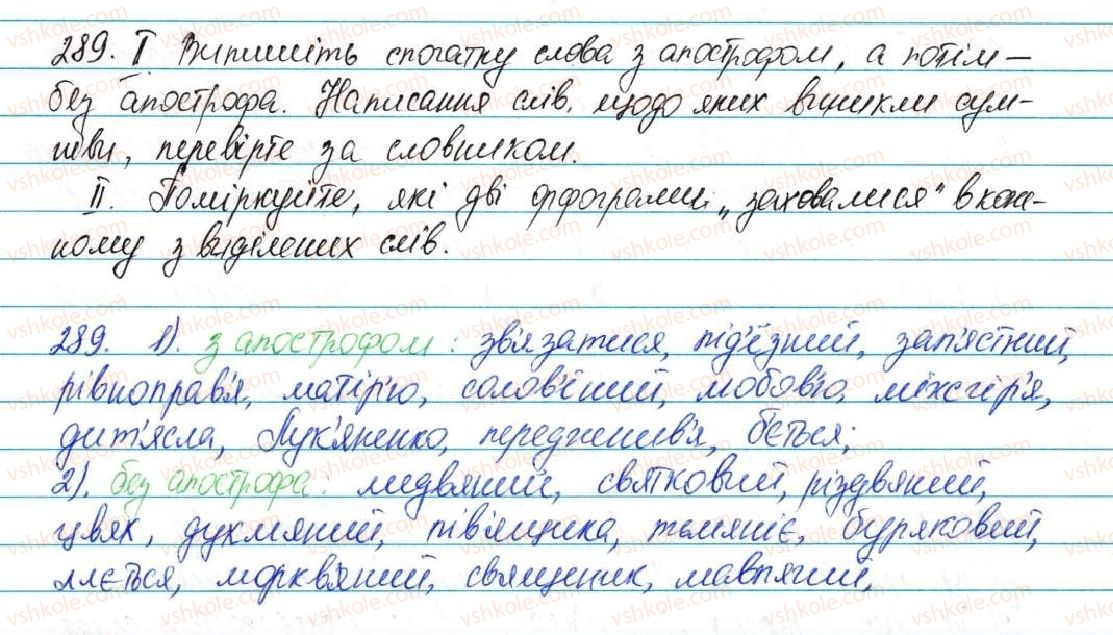 289. I Випишіть спочатку слова з апострофом, а потім –
без апострофа. Написання слів, щодо яких виникли сум-
ніви, перевірте за словником.
II. Поміркуйте, які дві орфограми „заховалися" в кож-
ному з виділених слів.
289. 1). з апострофом: зв'язатися, під'їзний, зап'ястний,
рівноправ'я, матір'ю, солов'їний, любов'ю, міжгір'я,
дит'ясла, Лук'яненко, переджнив'я, б'ється;
2). без апострофа: медвяний, святковий, різдвяний,
цвях, духмяний, пів'ящика, тьмяніє, буряковий,
ллється, морквяний, священик, мавпячий,